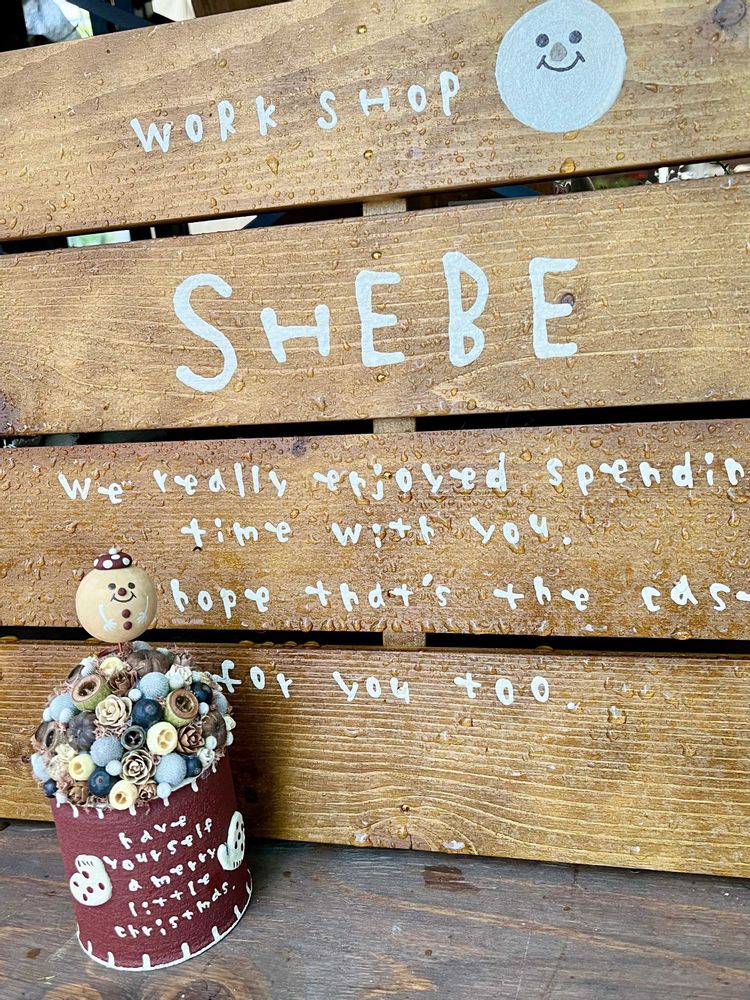 WORK SHOP
SHEBE
We really enjoyed spendin
time with you.
hope that's the cas
for you too
have
yourself
a merry
little
christmas.